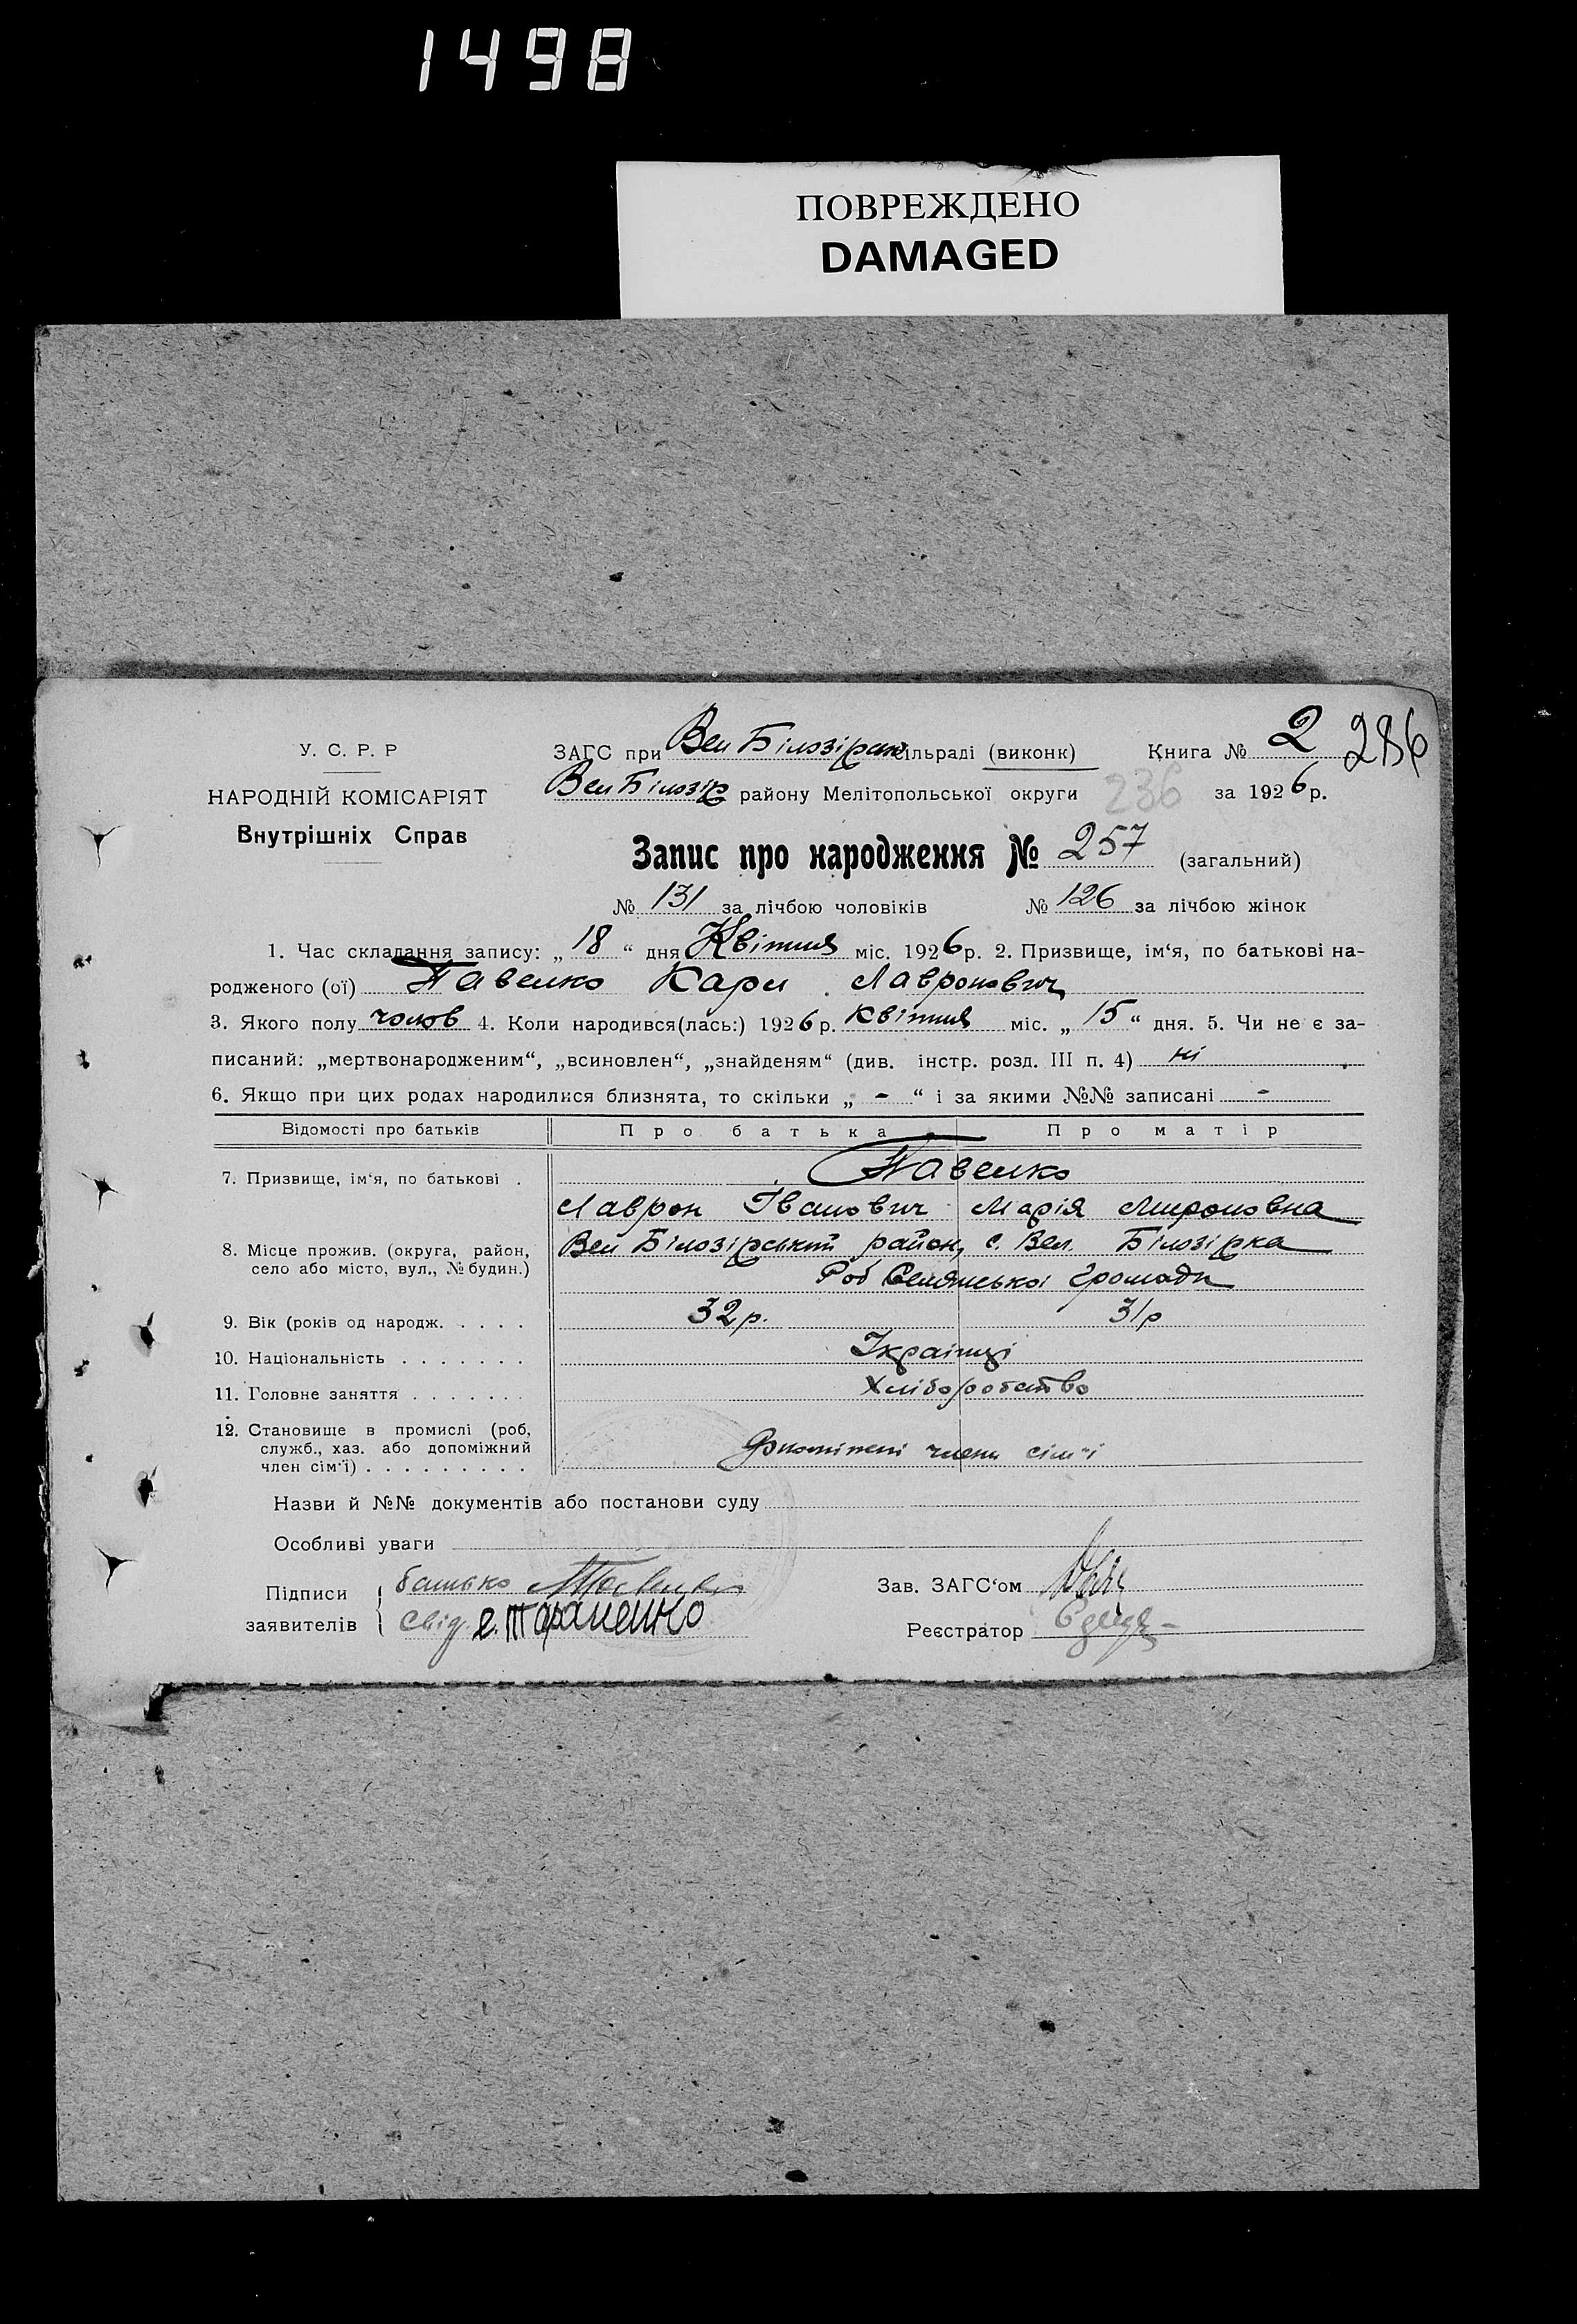 1498
ПОВРЕЖДЕНО
DAMAGED
У. С. Р. Р
НАРОДНІЙ КОМІСАРІЯТ
Внутрішніх Справ
ЗАГС при Вел Білозірск сільраді (виконк) Книга № 2 286
Вел Білозір району Мелітопольської округи 236 за 1926 р.
Запис про народження № 257 (загальний)
№ 131 за лічбою чоловіків № 126 за лічбою жінок
1. Час складання запису: „ 18 “ дня Квітня міс. 1926 р. 2. Призвище, ім‘я, по батькові на-
родженого (ої) Павенко Карл Лавронович
3. Якого полу чолов 4. Коли народився(лась:) 1926 р. Квітня міс. „ 15 “ дня. 5. Чи не є за-
писаний: „мертвонародженим“, „всиновлен“, „знайденям“ (див. інстр. розд. III п. 4) ні
6. Якщо при цих родах народилися близнята, то скільки „ - “ і за якими №№ записані -
Відомості про батьків Про батька Про матір
7. Призвище, ім‘я, по батькові . Павенко
Лаврон Іванович Марія Мироновна
8. Місце прожив. (округа, район, село або місто, вул., № будин.) Вел Білозірський район, с. Вел. Білозірка
Роб Селянської громади
9. Вік (років од народж. . . . . 32 р. 31 р
10. Національність . . . . . . . Українці
11. Головне заняття . . . . . . . Хліборобство
12. Становище в промислі (роб,
служб., хаз. або допоміжний
член сім‘ї) . . . . . . . . . члени сім'ї
Назви й №№ документів або постанови суду
Особливі уваги
Підписи батько Зав. ЗАГС‘ом
заявителів свід. Тараненко Реєстратор